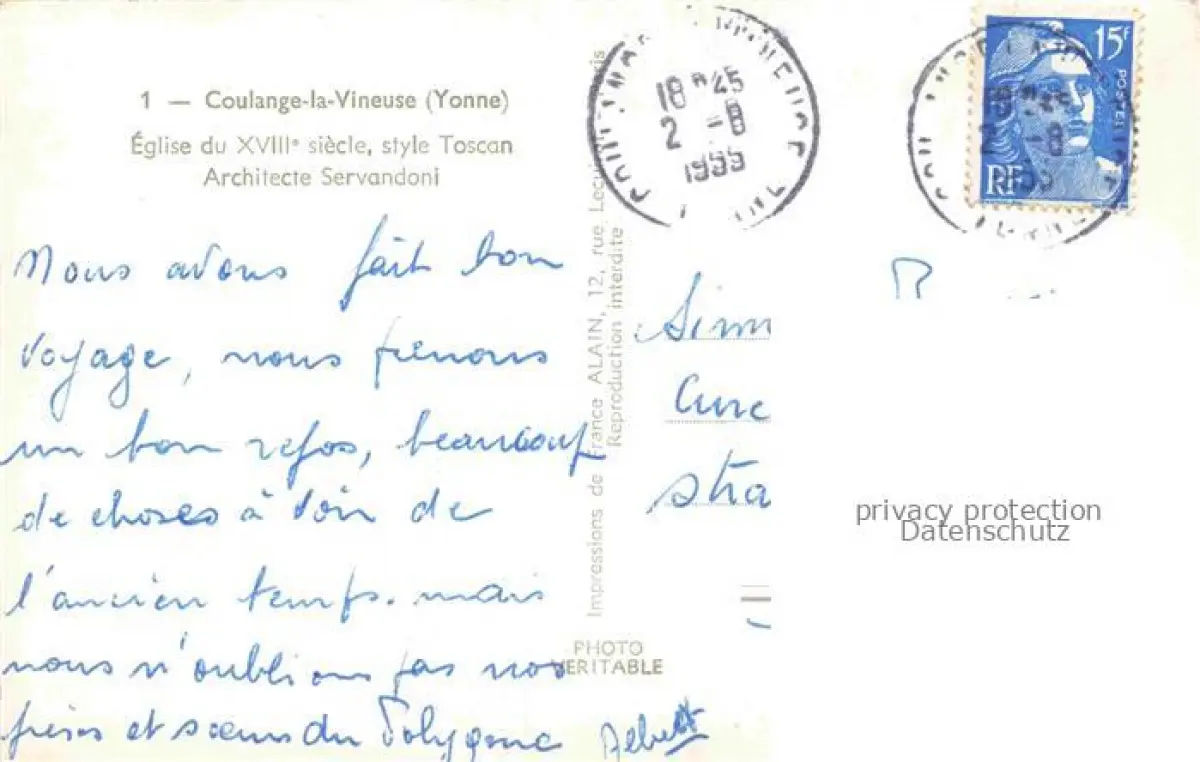 1 — Coulange-la-Vineuse (Yonne)
Église du XVIIIe siècle, style Toscan
Architecte Servandoni
Nous avons fait bon
voyage, nous prenons
un bon repos, beaucoup
de choses à voir de
l'ancien temps. mais
nous n'oublions pas nos
frères et sœurs du Polygone
Impressions de France ALAIN, 12, rue
Reproduction interdite
PHOTO
VERITABLE
18 H 45
2 - 8
1955
15F
POSTES
RF
18 H 45
2 - 8
1955
Sim
Curé
stra
privacy protection
Datenschutz